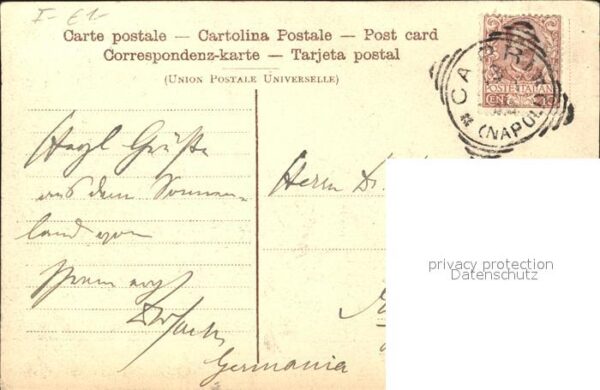 I-E1-
Carte postale — Cartolina Postale — Post card
Correspondenz-karte — Tarjeta postal
(UNION POSTALE UNIVERSELLE)
POSTE ITALIANE
CAPRI
(NAPOLI)
Herzl Grüße
aus dem Sonnen-
land von
Herrn Dr.
Germania
privacy protection
Datenschutz